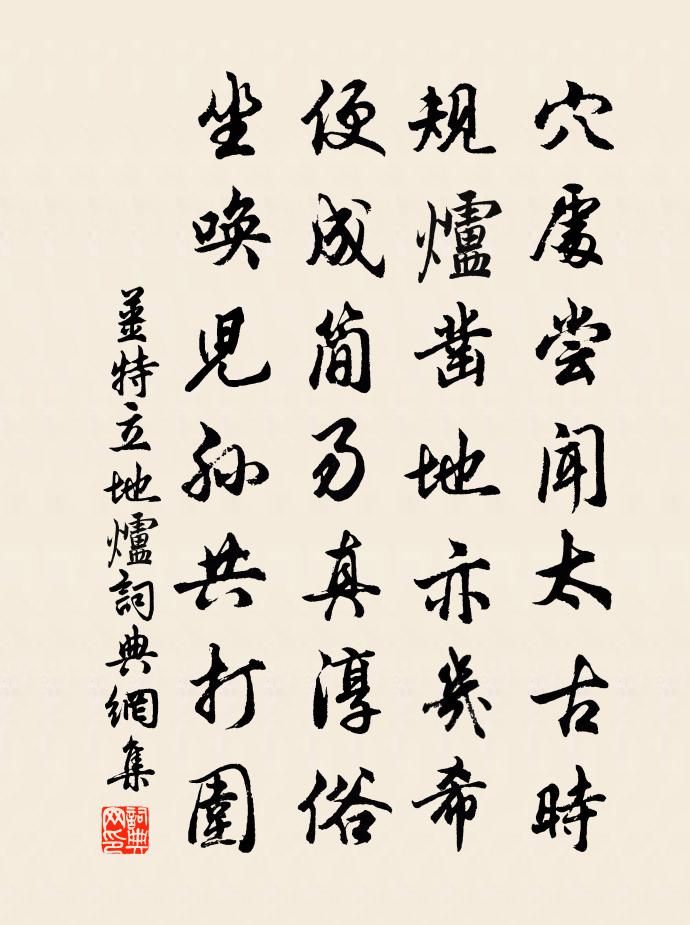 穴處嘗聞太古時
規爐鑿地亦幾希
便成簡易真淳俗
坐喚兒孫共打圍
姜特立地爐詞典網集
詞典网印